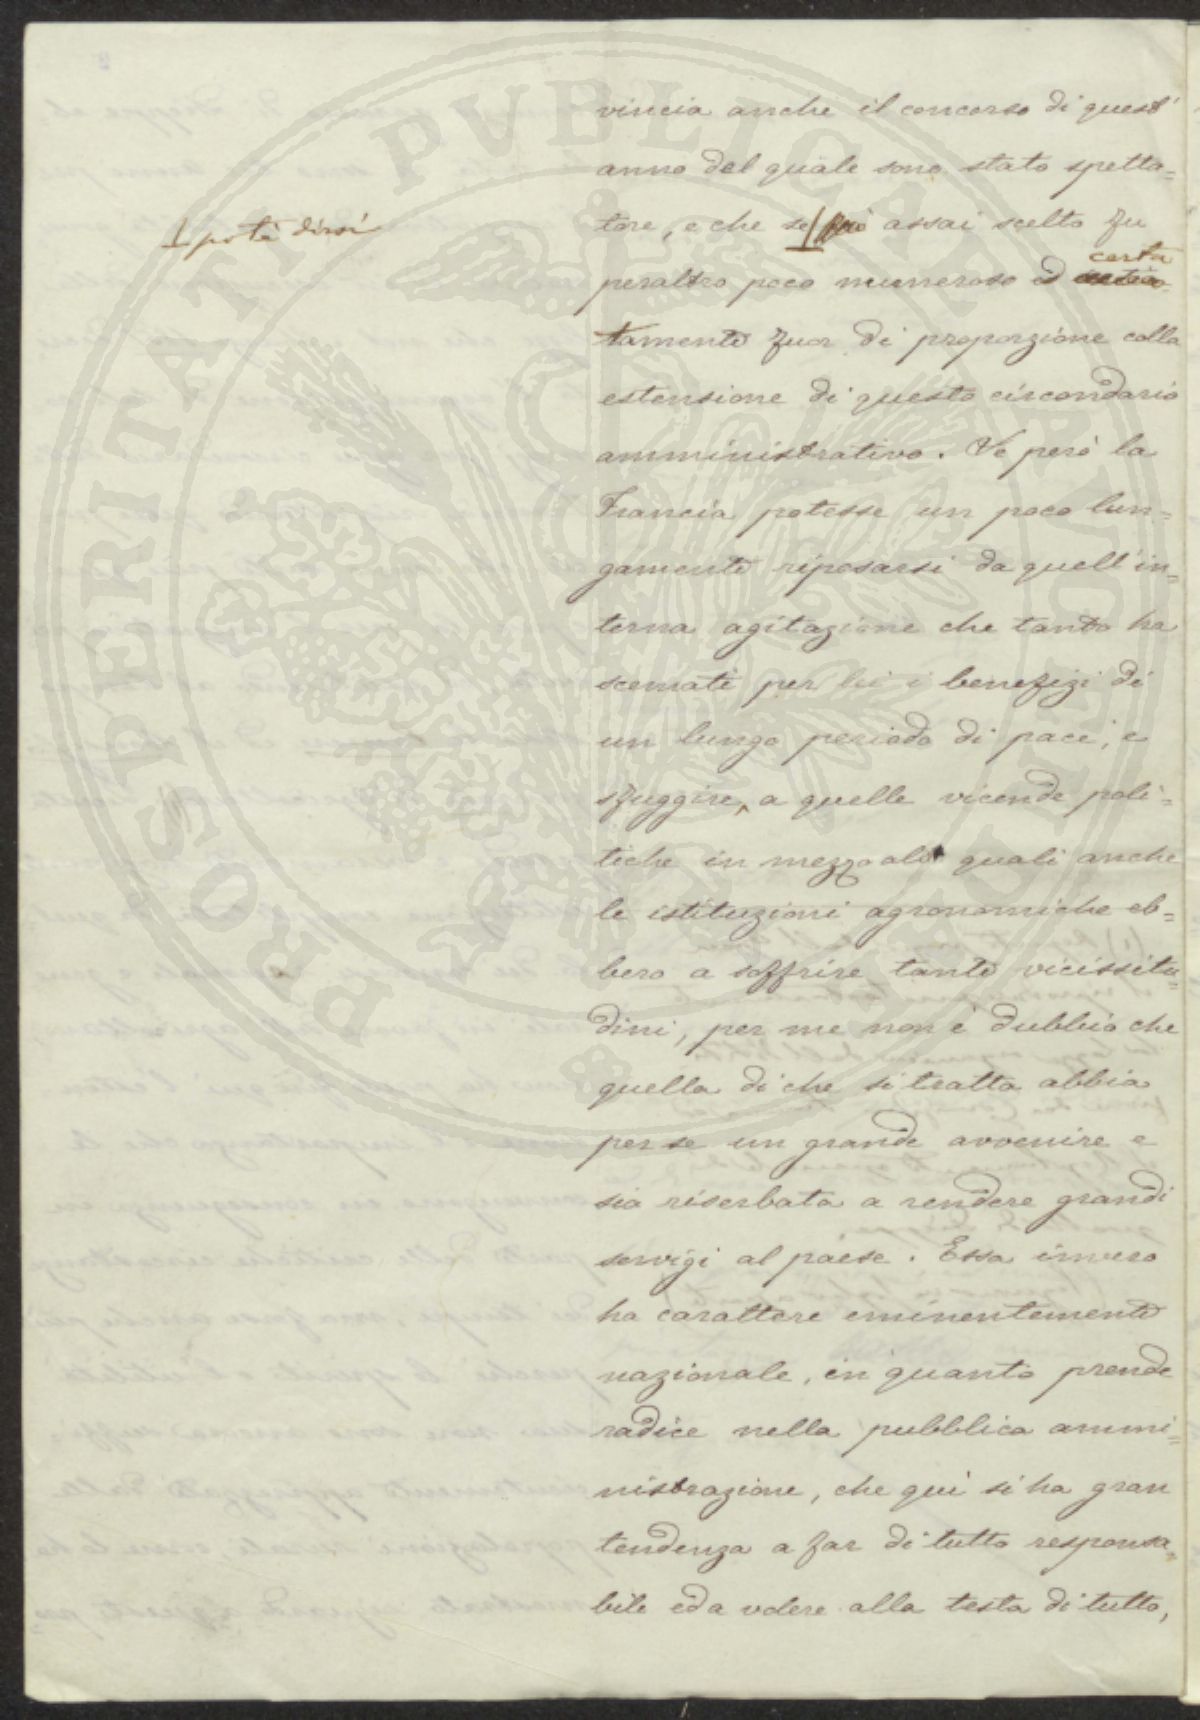 vincia anche il concorso di quest'
anno del quale sono stato spetta=
tore, e che se assai scelto fu
potè dirsi
certa
peraltro poco numeroso ed
tamente fuor di proporzione colla
estensione di questo circondario
amministrativo. Ve però la
Francia potesse un poco lun=
gamente riposarsi da quell'in=
terna agitazione che tanto ha
scemati per lei i benefizi di
un lungo periodo di pace, e
sfuggire a quelle vicende poli=
tiche in mezzo alle quali anche
le istituzioni agronomiche eb=
bero a soffrire tante vicissitu=
dini, per me non è dubbio che
quella di che si tratta abbia
per se un grande avvenire e
sia riserbata a rendere grandi
servigi al paese. Essa invero
ha carattere eminentemente
nazionale, in quanto prende
radice nella pubblica ammi=
nistrazione, che quì si ha gran
tendenza a far di tutto responsa=
bile ed a volere alla testa di tutto,
PROSPERITATI PVBLICAE